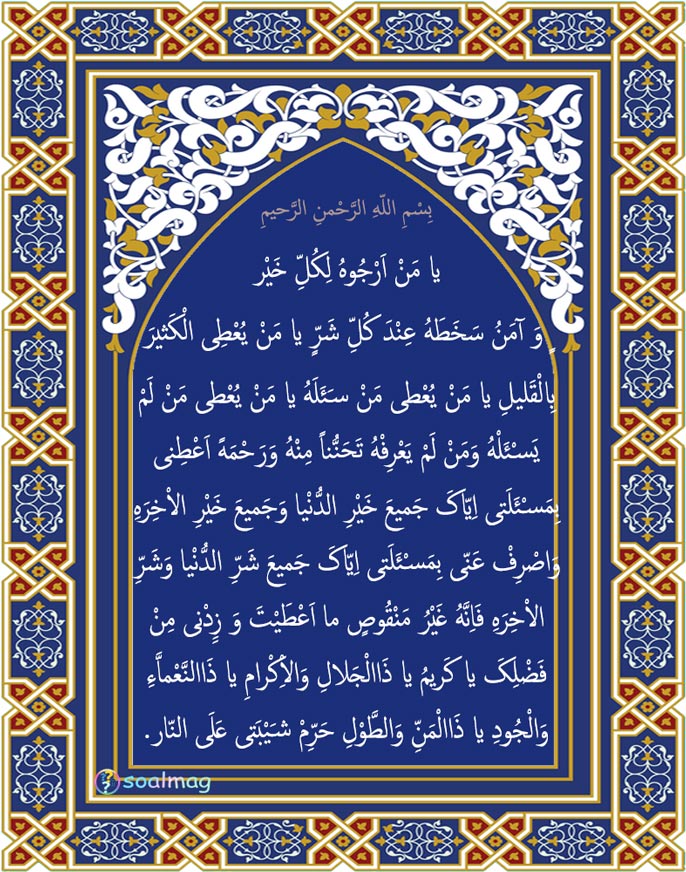 بِسْمِ اللّهِ الرَّحْمنِ الرَّحیمِ
یا مَنْ اَرْجُوهُ لِکُلِّ خَیْر
ٍ وَ آمَنُ سَخَطَهُ عِنْدَ کُلِّ شَرٍّ یا مَنْ یُعْطِی الْکَثیرَ
بِالْقَلیلِ یا مَنْ یُعْطی مَنْ سَئَلَهُ یا مَنْ یُعْطی مَنْ لَمْ
یَسْئَلْهُ وَمَنْ لَمْ یَعْرِفْهُ تَحَنُّناً مِنْهُ وَرَحْمَةً اَعْطِنی
بِمَسْئَلَتی اِیّاکَ جَمیعَ خَیْرِ الدُّنْیا وَجَمیعَ خَیْرِ الاْخِرَهِ
وَاصْرِفْ عَنّی بِمَسْئَلَتی اِیّاکَ جَمیعَ شَرِّ الدُّنْیا وَشَرِّ
الاْخِرَهِ فَاِنَّهُ غَیْرُ مَنْقُوصٍ ما اَعْطَیْتَ وَ زِدْنی مِنْ
فَضْلِکَ یا کَریمُ یا ذَاالْجَلالِ وَالاِْکْرامِ یا ذَاالنَّعْماَّءِ
وَالْجُودِ یا ذَاالْمَنِّ وَالطَّوْلِ حَرِّمْ شَیْبَتی عَلَی النّار.
soalmag